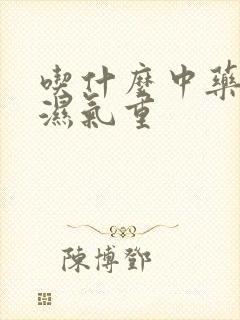 喫什麼中藥
濕氣重
陳博鄧